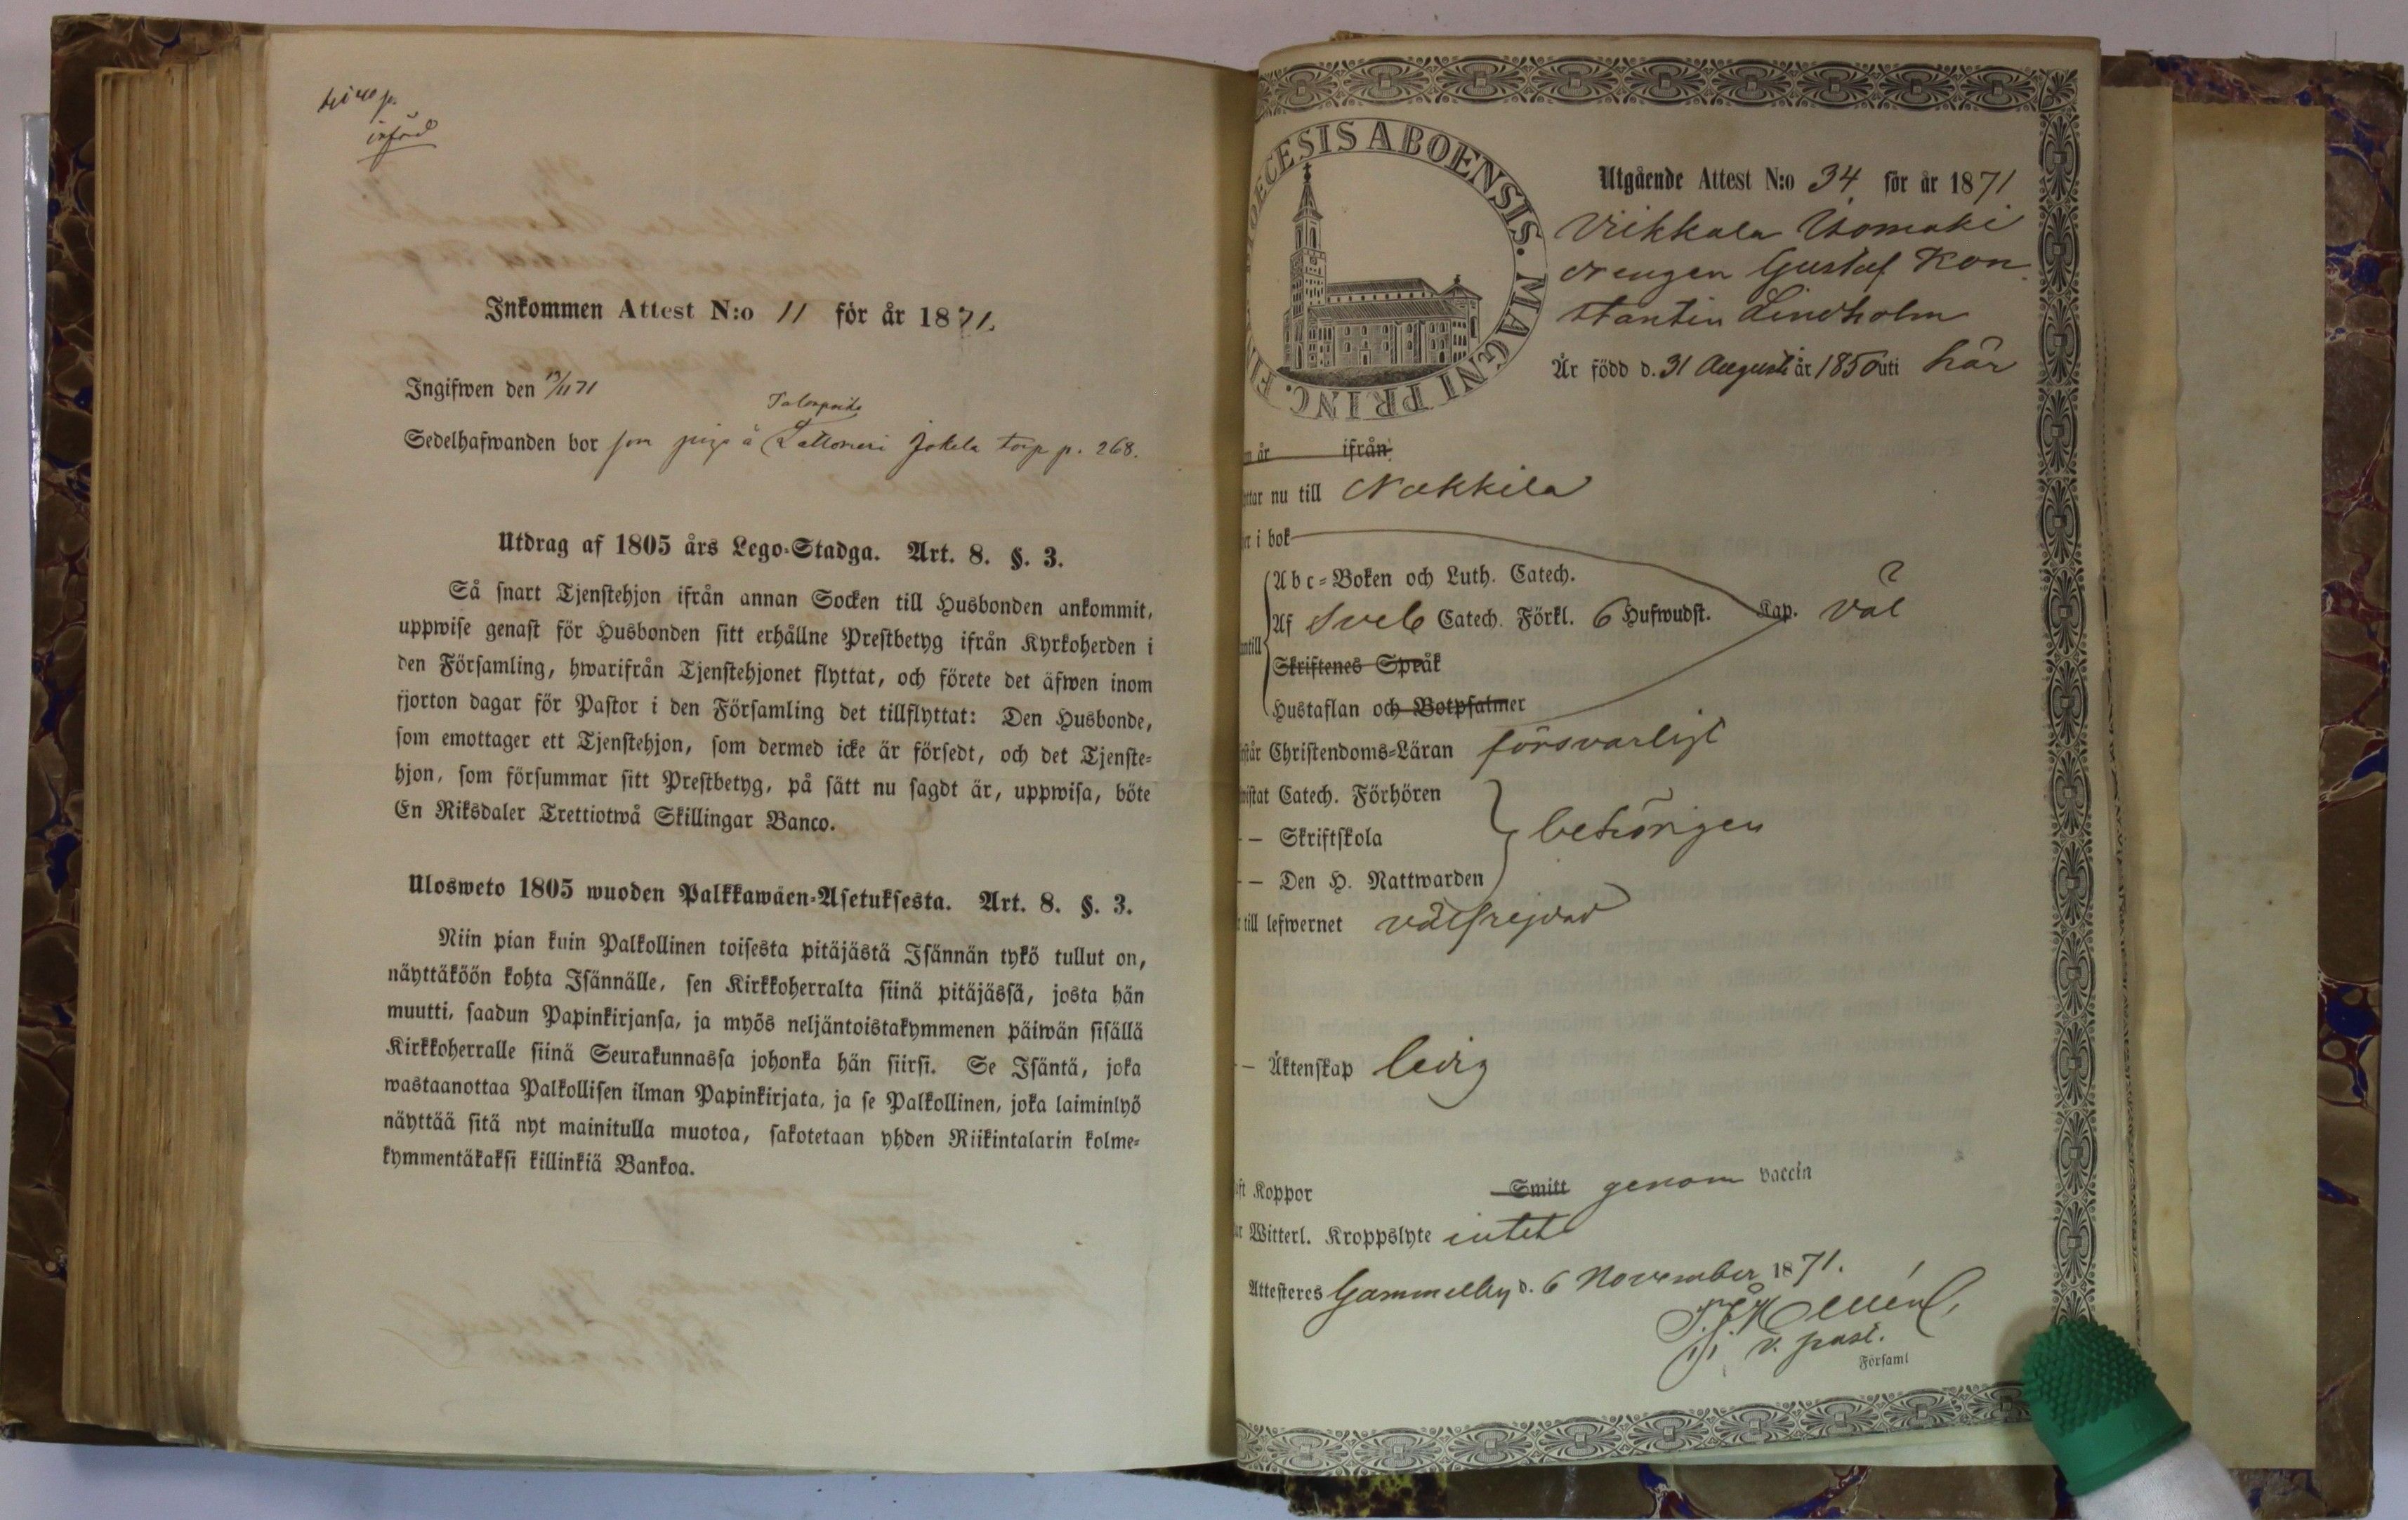 införd
Inkommen Attest N:o 11 för år 1871.
Ingifwen den 13/11 71
Sedelhafwanden bor som piga å Jokela torp p. 268.
Utdrag af 1805 års Lego-Stadga. Art. 8. §. 3.
Så snart Tjenstehjon ifrån annan Socken till Husbonden ankommit,
uppwise genast för Husbonden sitt erhållne Prestbetyg ifrån Kyrkoherden i
den Församling, hwarifrån Tjenstehjonet flyttat, och förete det äfwen inom
fjorton dagar för Pastor i den Församling det tillflyttat: Den Husbonde,
som emottager ett Tjenstehjon, som dermed icke är försedt, och det Tjenste-
hjon, som försummar sitt Prestbetyg, på sätt nu sagdt är, uppwisa, böte
En Riksdaler Trettiotwå Skillingar Banco.
Ulosweto 1805 wuoden Palkkawäen-Asetuksesta. Art. 8. §. 3.
Niin pian kuin Palkollinen toisesta pitäjästä Isännän tykö tullut on,
näyttäköön kohta Isännälle, sen Kirkkoherralta siinä pitäjässä, josta hän
muutti, saadun Papinkirjansa, ja myös neljäntoistakymmenen päiwän sisällä
Kirkkoherralle siinä Seurakunnassa johonka hän siirsi. Se Isäntä, joka
wastaanottaa Palkollisen ilman Papinkirjata, ja se Palkollinen, joka laiminlyö
näyttää sitä nyt mainitulla muotoa, sakotetaan yhden Riikintalarin kolme-
kymmentäkaksi killinkiä Bankoa.
DIOECESIS ABOENSIS. MAGNI PRINC.
Utgående Attest N:o 34 för år 1871
Viikkala Isomäki
drengen Gustaf Kon
stantin Lindholm
Är född d. 31 Augusti år 1850 uti här
år ifrån
nu till Nakkila
i bok
Abc-Boken och Luth. Catech.
Af Sveb Catech. Förkl. 6 Hufwudst. Kap. väl
Skriftenes Språk
Hustaflan och Botpsalmer
Christendoms-Läran försvarligt
Catech. Förhören
– – Skriftskola behörigen
– – Den H. Nattwarden
till lefwernet välfrejdad
– Äktenskap ledig
Koppor Smitt genom vaccin
Witterl. Kroppslyte intet
Attesteres Gammelby d. 6 November 1871.
v. past.
Församl